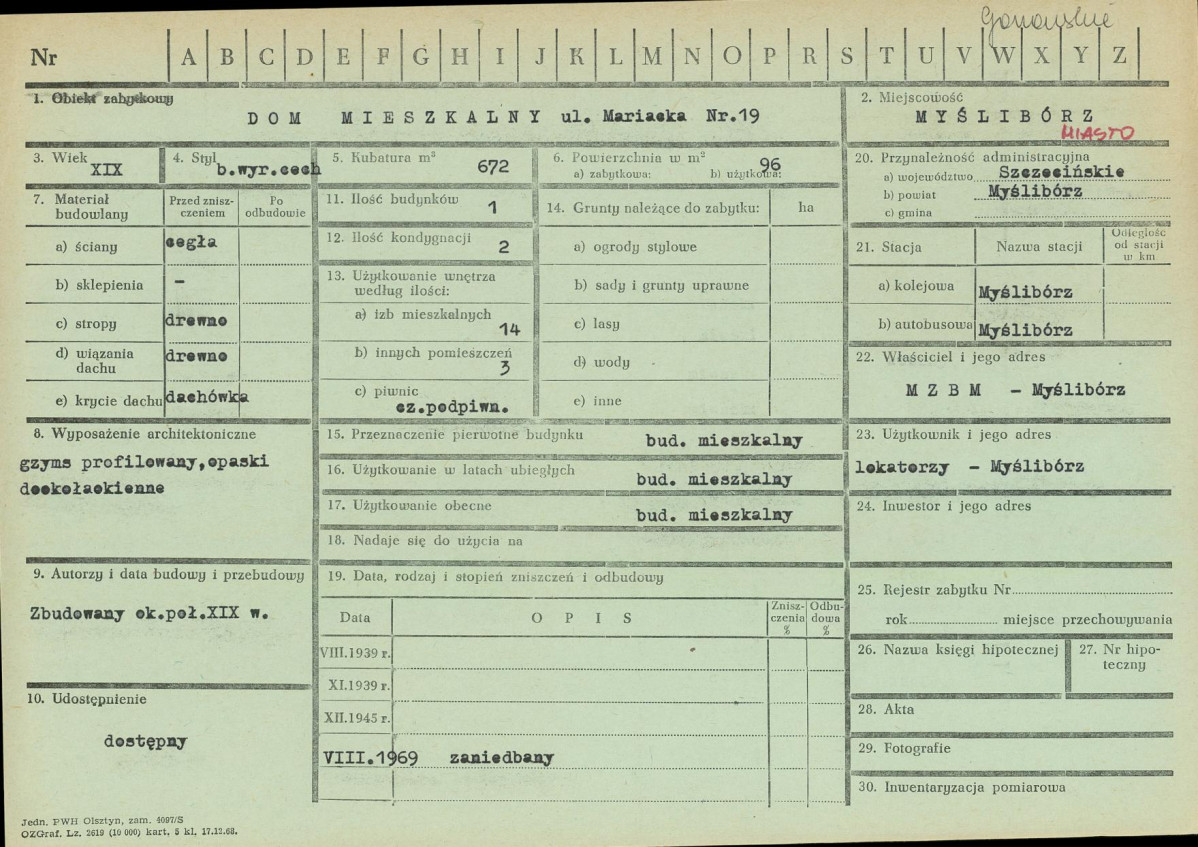 Nr A B C D E F G H I J K L M N O P R S T U V W X Y Z
1. Obiekt zabytkowy
DOM MIESZKALNY ul. Mariacka Nr.19
2. Miejscowość
MYŚLIBÓRZ
MIASTO
3. Wiek
XIX
4. Styl
b.wyr.cech
5. Kubatura m³
672
6. Powierzchnia w m²
a) zabytkowa: b) użytkowa:
96
20. Przynależność administracyjna
a) województwo Szczecińskie
b) powiat Myślibórz
c) gmina
7. Materiał budowlany
Przed zniszczeniem
Po odbudowie
a) ściany cegła
b) sklepienia –
c) stropy drewno
d) wiązania dachu drewno
e) krycie dachu dachówka
11. Ilość budynków 1
12. Ilość kondygnacji 2
13. Użytkowanie wnętrza
według ilości:
a) izb mieszkalnych
14
b) innych pomieszczeń
3
c) piwnic
cz.podpiwn.
14. Grunty należące do zabytku: ha
a) ogrody stylowe
b) sady i grunty uprawne
c) lasy
d) wody
e) inne
21. Stacja
Nazwa stacji
Odległość
od stacji
w km
a) kolejowa Myślibórz
b) autobusowa Myślibórz
22. Właściciel i jego adres
MZBM – Myślibórz
8. Wyposażenie architektoniczne
gzyms profilowany,opaski
dookołaokienne
15. Przeznaczenie pierwotne budynku bud. mieszkalny
16. Użytkowanie w latach ubiegłych bud. mieszkalny
17. Użytkowanie obecne bud. mieszkalny
18. Nadaje się do użycia na
23. Użytkownik i jego adres
lokatorzy – Myślibórz
24. Inwestor i jego adres
9. Autorzy i data budowy i przebudowy
Zbudowany ok.poł.XIX w.
19. Data, rodzaj i stopień zniszczeń i odbudowy
Data OPIS
Znisz-
czenia
%
Odbu-
dowa
%
VIII.1939 r.
XI.1939 r.
XII.1945 r.
VIII.1969 zaniedbany
25. Rejestr zabytku Nr
rok miejsce przechowywania
26. Nazwa księgi hipotecznej
27. Nr hipo-
teczny
10. Udostępnienie
dostępny
28. Akta
29. Fotografie
30. Inwentaryzacja pomiarowa
Jedn. PWH Olsztyn, zam. 4097/S
OZGraf. Lz. 2619 (10 000) kart, 5 kl, 17.12.68.